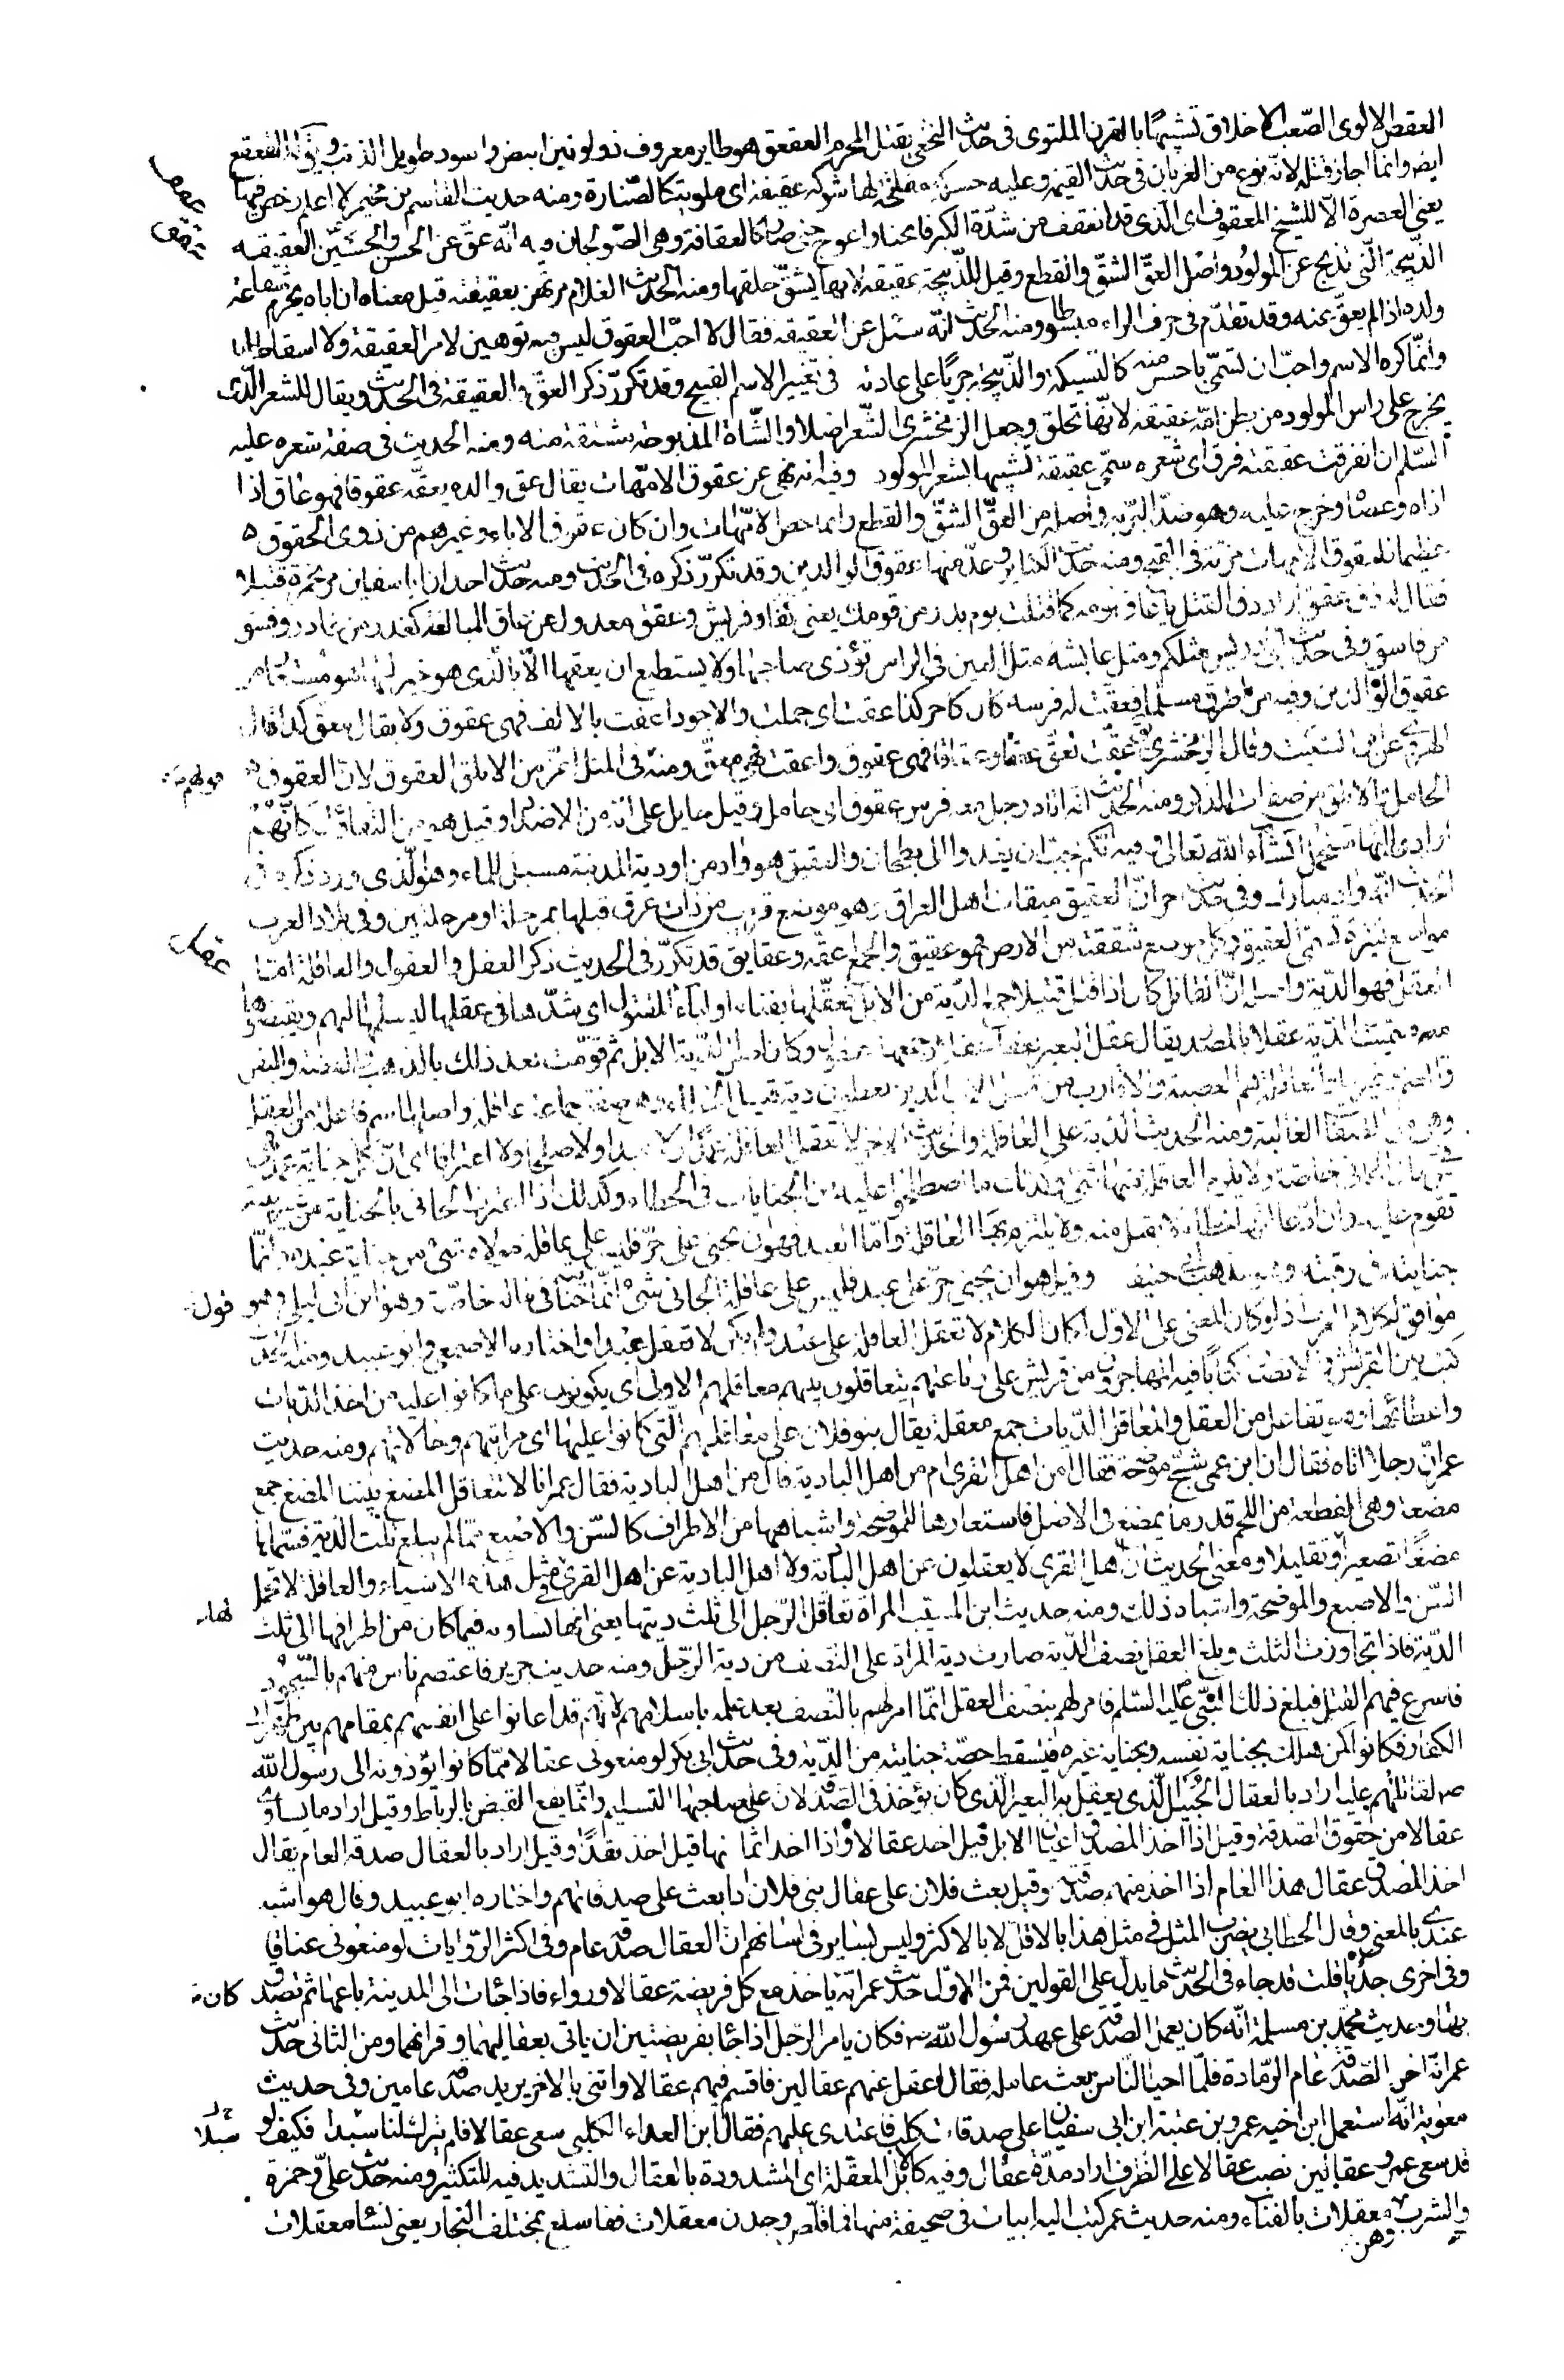 العقص الالوى الصّعب الاخلاق تشبيهًا بالقرن الملتوى فى حديث النخعى يقتل المحرم العقعق هو طاير معروف ذو لونين ابيض واسود طويل الذنب ويقال له القعقع
ايض وانما اجاز قتله لانّه نوع من الغربان فى حديث القيمه وعليه حسكة مفلطحة لها شوكه عقيفة اى ملويّة كالصّنارة ومنه حديث القاسم بن مخيمر لا اعلم رخص فيها
يعنى العصرة الّا للشيخ المعقوف اى الّذى قد انعقف من شدّة الكبر فانحنا واعوج حتى صار كالعقافة وهى الصّولجان فيه انّه عقّ عن الحسن والحسين العقيقه
الذّبيحة الّتى تذبح عن المولود واصل العقّ الشقّ والقطع وقيل للذّبيحة عقيقة لانها يشقّ حلقها ومنه الحديث الغلام مرتهن بعقيقته قيل معناه ان اباه يحرم شفاعة
ولده اذا لم يعقّ عنه وقد تقدّم فى حرف الراء مبسوطا ومنه الحديث انّه سئل عن العقيقه فقال لا احبّ العقوق ليس فيه توهين لامر العقيقة ولا اسقاط لها
وانّما كره الاسم واحبّ ان تسمّى باحسن منه كالنسيكة والذّبيحة جريًا على عادته فى تغيير الاسم القبيح وقد تكرّر ذكر العقّ والعقيقة فى الحديث ويقال للشعر الّذى
يخرج على راس المولود من بطن امّه عقيقه لانّها تحلق وجعل الزمخشرى الشّعر اصلا والشّاة المذبوحة مشتقة منه ومنه الحديث فى صفة شعره عليه
السّلم ان انفرقت عقيقته فرق اى شعره سمّى عقيقة تشبيها بشعر المولود وفيه انه نهى عن عقوق الامّهات يقال عق والده يعقّه عقوقا فهو عاق اذا
اذاه وعصاه وخرج عليه وهو ضدّ البرّ به واصله من العقّ الشقّ والقطع وانما خصّ الامّهات وان كان عقوق الاباء وغيرهم من ذوى الحقوق
عظيما فلعقوق الامهات مزيّة فى القبح ومنه حديث الكباير وعدّ منها عقوق الوالدين وقد تكرّر ذكره فى الحديث ومنه حديث احد ان ابا سفيان مر بحمزة قتيلا
فقال له ذق عقق اراد ذق القتل يا عاق قومه كما قتلت يوم بدر من قومك يعنى كفار قريش وعقق معدول عن عاق للمبالغة كغدر من غادر وفسق
من فاسق وفى حديث ابى ادريس مثلكم ومثل عايشه مثل العين فى الراس تؤذى صاحبها ولا يستطيع ان يعقها الّا بالّذى هو خير لها هو مستعار من
عقوق الوالدين وفيه من اطرق مسلما فعقّت له فرسه كان كاجر كذا عقت اى حملت والاجود اعقت بالالف فهى عقوق ولا يقال معق كذا قال
الهروى عن ابن السكيت وقال الزمخشرى يق عقّت تعقّ عققا وعقاقا فهى عقوق واعقت فهى معقّ ومنه فى المثل اعز من الابلق العقوق لانّ العقوق
الحامل والابلق من صفات الذكر ومنه الحديث انه اتاه رجل معه فرس عقوق اى حامل وقيل حايل على انّه من الاضداد وقيل هو من التفاؤل كانّهم
ارادوا انها ستحمل انشاء الله تعالى وفيه ايّكم يحب ان يغدوا الى بطحان والعقيق هو واد من اودية المدينة مسيل للماء وهو الّذى ورد ذكره فى
الحديث انّه واد مبارك وفى حديث اخر انّ العقيق ميقات اهل العراق وهو موضع قريب من ذات عرق قبلها بمرحلة او مرحلتين وفى بلاد العرب
مواضع كثيرة تسمّى العقيق وكل موضع شققته من الارض فهو عقيق والجمع اعقّة وعقايق قد تكرّر فى الحديث ذكر العقل والعقول والعاقلة امّا
العقل فهو الدّية واصله انّ القاتل كان اذا قتل قتيلا جمع الدّية من الابل فعقّلها بفناء اولياء المقتول اى شدّها فى عقلها ليسلمها اليهم ويقبضوها
منه فسمّيت الدّية عقلا بالمصدر يقال عقل البعير يعقله عقلا وجمعها عقول وكان اصل الدّية الابل ثم قوّمت بعد ذلك بالذهب والفضة والبقر
والغنم وغيرها والعاقلة هم العصبة والاقارب من قبل الاب الّذين يعطون دية قتيل الخطاء وهى صفة جماعة عاقلة واصلها اسم فاعلة من العقل
وهى من الصفات الغالبة ومنه الحديث الدّية على العاقلة والحديث الاخر لا تعقل العاقلة عمدًا ولا عبدا ولا صلحا ولا اعترافا اى انّ كل جناية عمد
فانها من مال الجانى خاصّة ولا يلزم العاقلة منها شئ وكذلك ما اصطلحوا عليه من الجنايات فى الخطاء وكذلك اذا اعترف الجانى بالجناية من غير بيّنة
تقوم عليه وان ادّعا انها خطاء لا يقبل منه ولا يلزم بها العاقلة وامّا العبد فهو ان يجنى على حرّ فليس على عاقلة مولاه شئ من جناية عبده وانّما
جنايته فى رقبته وهو مذهب ابى حنيفه وقيل هو ان يجنى حرّ على عبد فليس على عاقلة الجانى شئ انّما جنايته فى ماله خاصّة وهو قول ابن ابى ليلى وهو
موافق لكلام العرب اذ لو كان المعنى على الاوّل لكان الكلام لا تعقل العاقلة على عبد ولم يكن لا تعقل عبدا واختاره الاصمعى وابو عبيد ومنه الحديث
كتب بين قريش والانصار كتابًا فيه المهاجرون من قريش على رباعتهم يتعاقلون بينهم معاقلهم الاولى اى يكونون على ما كانوا عليه من اخذ الدّيات
واعطائها وهو تفاعل من العقل والمعاقل الدّيات جمع معقلة يقال بنو فلان على معاقلهم الّتى كانوا عليها اى مراتبهم وحالاتهم ومنه حديث
عمر انّ رجلا اتاه فقال ان ابن عمى شجّ موضحة فقال امن اهل القرى ام من اهل البادية قال من اهل البادية فقال عمر انا لا نتعاقل المضغ بيننا المضغ جمع
مضغة وهى القطعة من اللحم قدر ما يمضغ فى الاصل فاستعارها للموضحة واشباهها من الاطراف كالسّن والاصبع ممّا لم يبلغ ثلث الدّية فسمّاها
مضغًا تصغيرا وتقليلا ومعنى الحديث انّ اهل القرى لا يعقلون عن اهل البادية ولا اهل البادية عن اهل القرى فى مثل هذه الاشياء والعاقلة لا تحمل
السّن والاصبع والموضحة واشباه ذلك ومنه حديث ابن المسيّب المراة تعاقل الرّجل الى ثلث ديتها يعنى انها تساويه فيما كان من اطرافها الى ثلث
الدّية فاذا تجاوزت الثلث وبلغ العقل نصف الدّية صارت دية المراة على النّصف من دية الرّجل ومنه حديث جرير فاعتصم ناس منهم بالسّجود
فاسرع فيهم القتل فبلغ ذلك النّبىّ عليه السّلم فامر لهم بنصف العقل انّما امر لهم بالنّصف بعد علمه باسلامهم لانّهم قد اعانوا على انفسهم بمقامهم بين ظهرانى
الكفار فكانوا كمن هلك بجناية نفسه وبجناية غيره فيسقط حصّة جنايته من الدّية وفى حديث ابى بكر لو منعونى عقالا ممّا كانوا يؤدونه الى رسول الله
صم لقاتلتهم عليه اراد بالعقال الحبل الّذى يعقل به البعير الّذى كان يؤخذ فى الصّدقة لان على صاحبها التسليم وانّما يقع القبض بالرباط وقيل اراد ما يساوى
عقالا من حقوق الصّدقة وقيل اذا اخذ المصدق اعيان الابل قيل اخذ عقالا واذا اخذ اثمانها قيل اخذ نقدًا وقيل اراد بالعقال صدقة العام يقال
اخذ المصدق عقال هذا العام اذا اخذ منهم صدقته وقيل بعث فلان على عقال بنى فلان اذا بعث على صدقاتهم واختاره ابو عبيد وقال هو اشبه
عندى بالمعنى وقال الخطابى يضرب المثل فى مثل هذا بالاقلّ لا بالاكثر وليس بساير فى لسانهم انّ العقال صدقة عام وفى اكثر الرّوايات لو منعونى عناقا
وفى اخرى جديا قلت قد جاء فى الحديث ما يدل على القولين فمن الاوّل حديث عمر انّه كان ياخذ مع كل فريضة عقالا ورواء فاذا جائت الى المدينة باعها ثم تصدق
بها وحديث محمّد بن مسلمة انّه كان يعمل الصّدقة على عهد رسول الله صم فكان يامر الرّجل اذا جا بفريضتين ان ياتى بعقاليهما وقرانهما ومن الثانى حديث
عمر انّه اخر الصّدقة عام الرّمادة فلمّا احيا النّاس بعث عامله فقال اعقل عنهم عقالين فاقسم فيهم عقالا واتنى بالاخر يريد صدقة عامين وفى حديث
معوية انّه استعمل ابن اخيه عمرو بن عتبة ابن ابى سفين على صدقات كلب فاعتدى عليهم فقال ابن العداء الكلبى سعى عقالا فلم يترك لنا سبدا فكيف لو
قد سعى عمرو عقالين نصب عقالا على الظرف اراد مدّة عقال وفيه كالابل المعقّلة اى المشدودة بالعقال والتشديد فيه للتكثير ومنه حديث علىّ وحمزة
والشرب وهن معقلات بالفناء ومنه حديث عمر كتب اليه ابيات فى صحيفة منها فما قلص وجدن معقلات قفا سلع بمختلف النجار يعنى نسّا معقلات